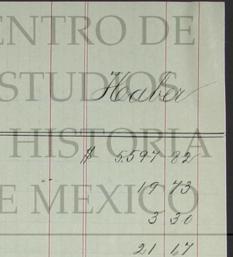 CENTRO DE
ESTUDIOS
Haber
HISTORIA
$ 5.597 82
" 19 73
DE MEXICO
3 30
21 67